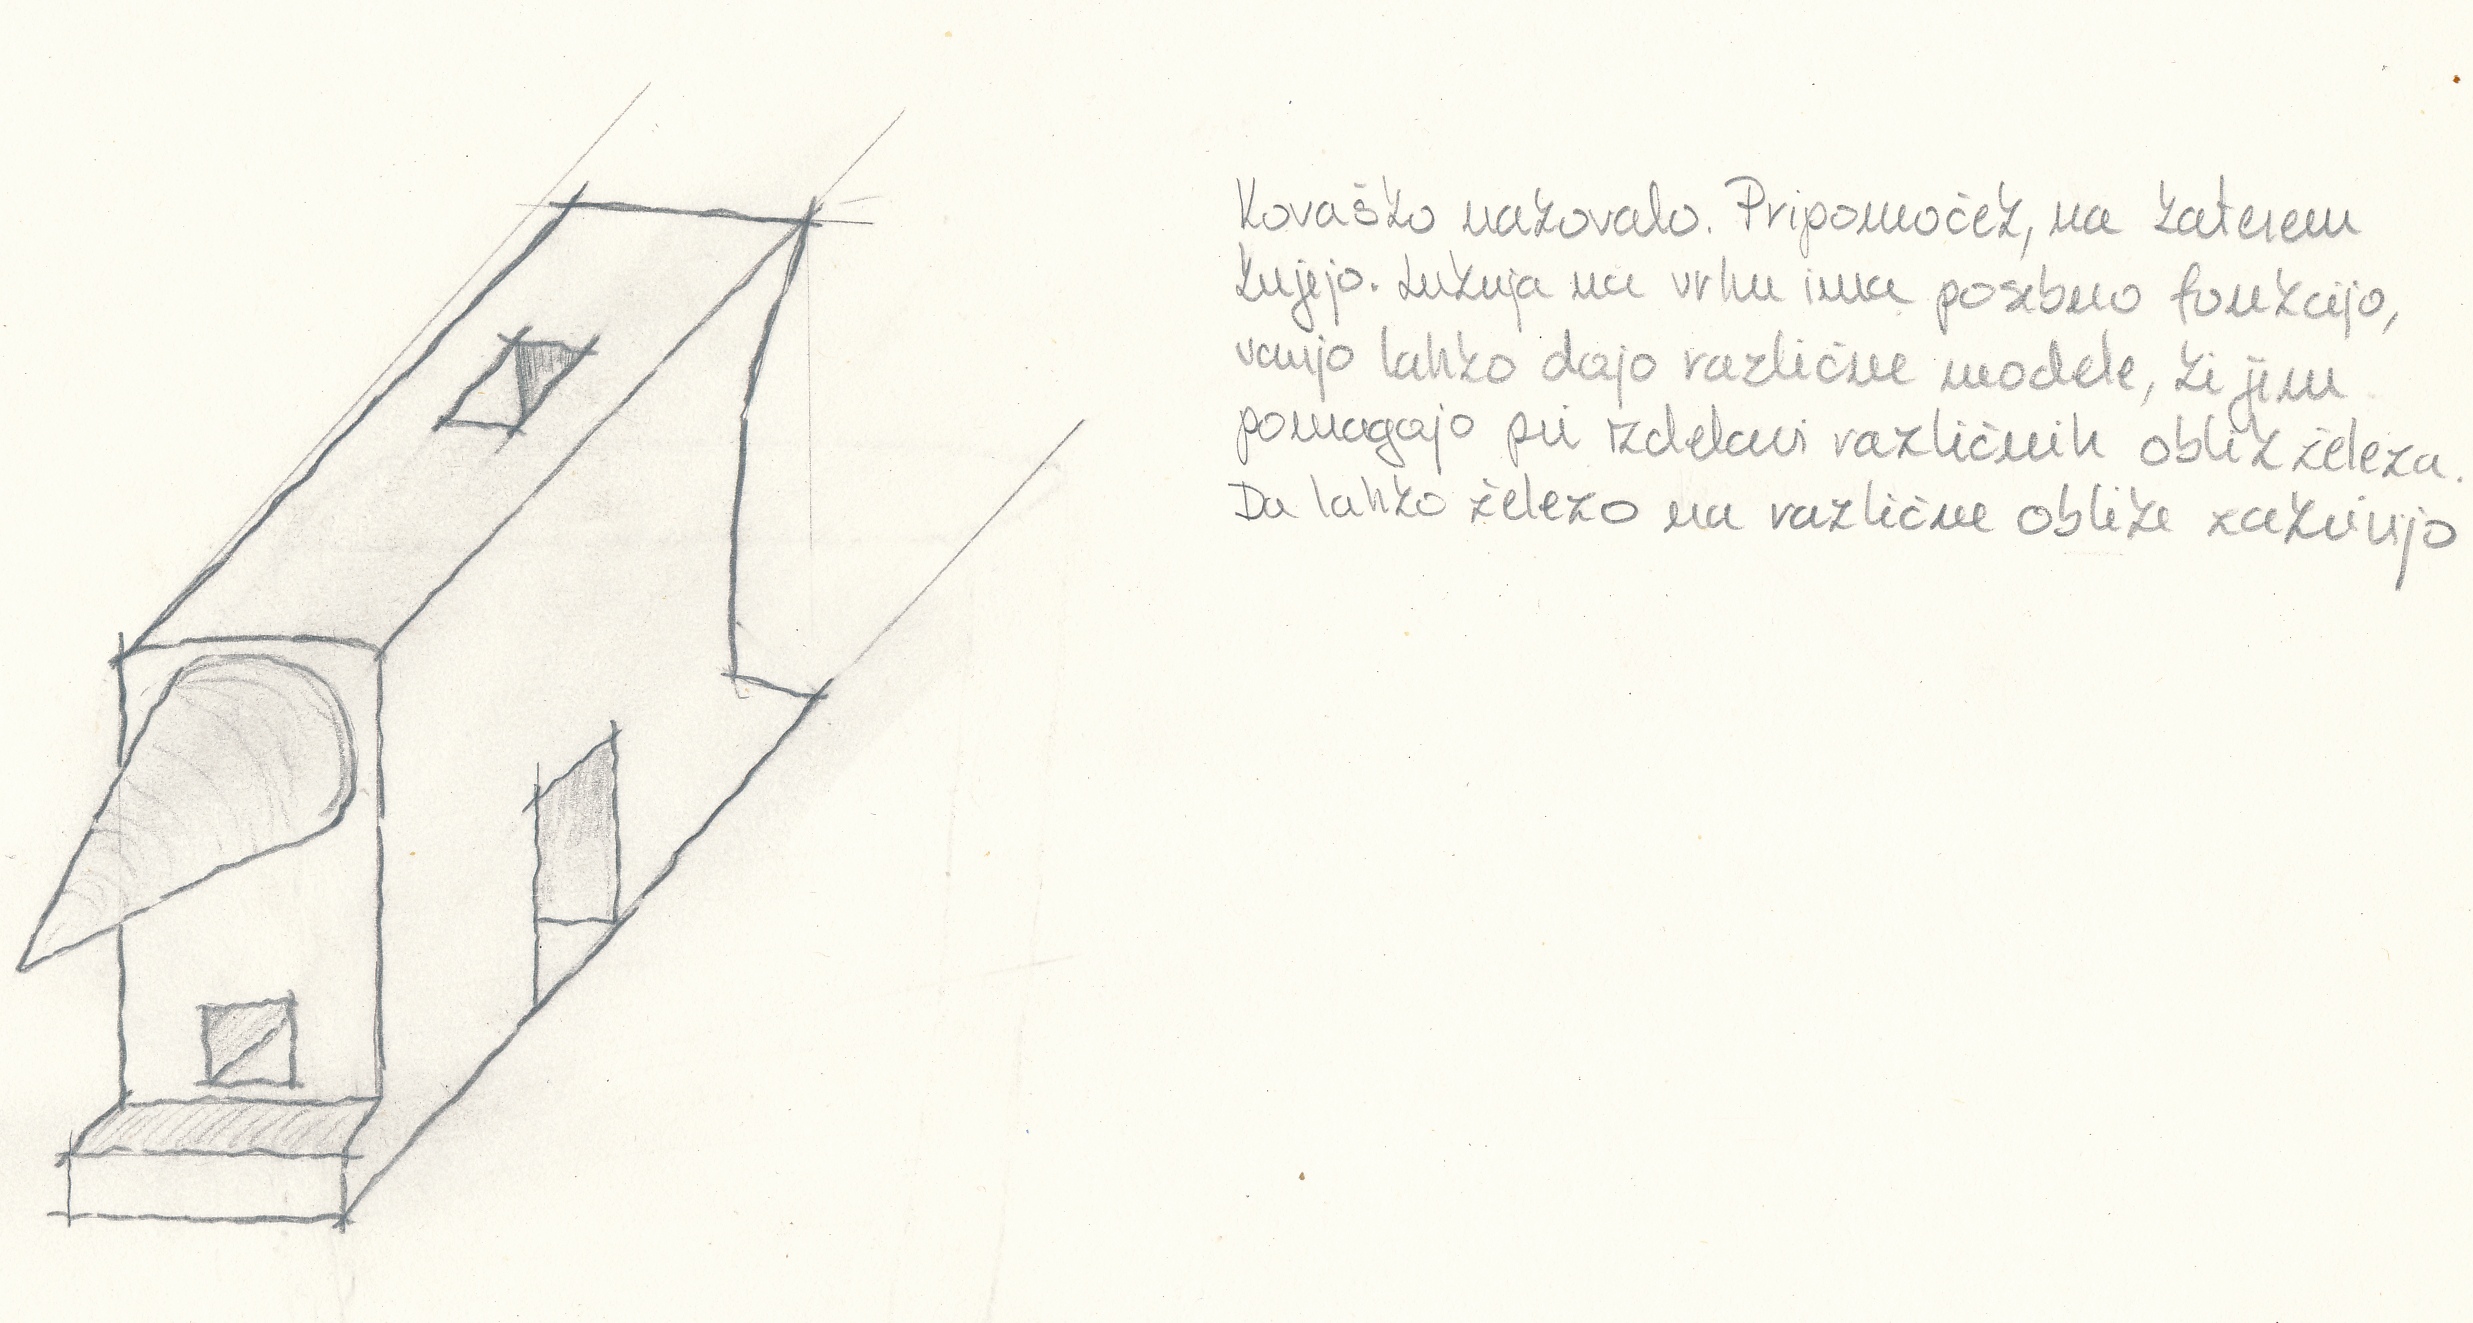 Kovaško nakovalo. Pripomoček, na katerem
kujejo. Luknja na vrhu ima posebno funkcijo,
vanjo lahko dajo različne modele, ki jim
pomagajo pri izdelavi različnih oblik železa.
Da lahko železo na različne oblike zakrivijo